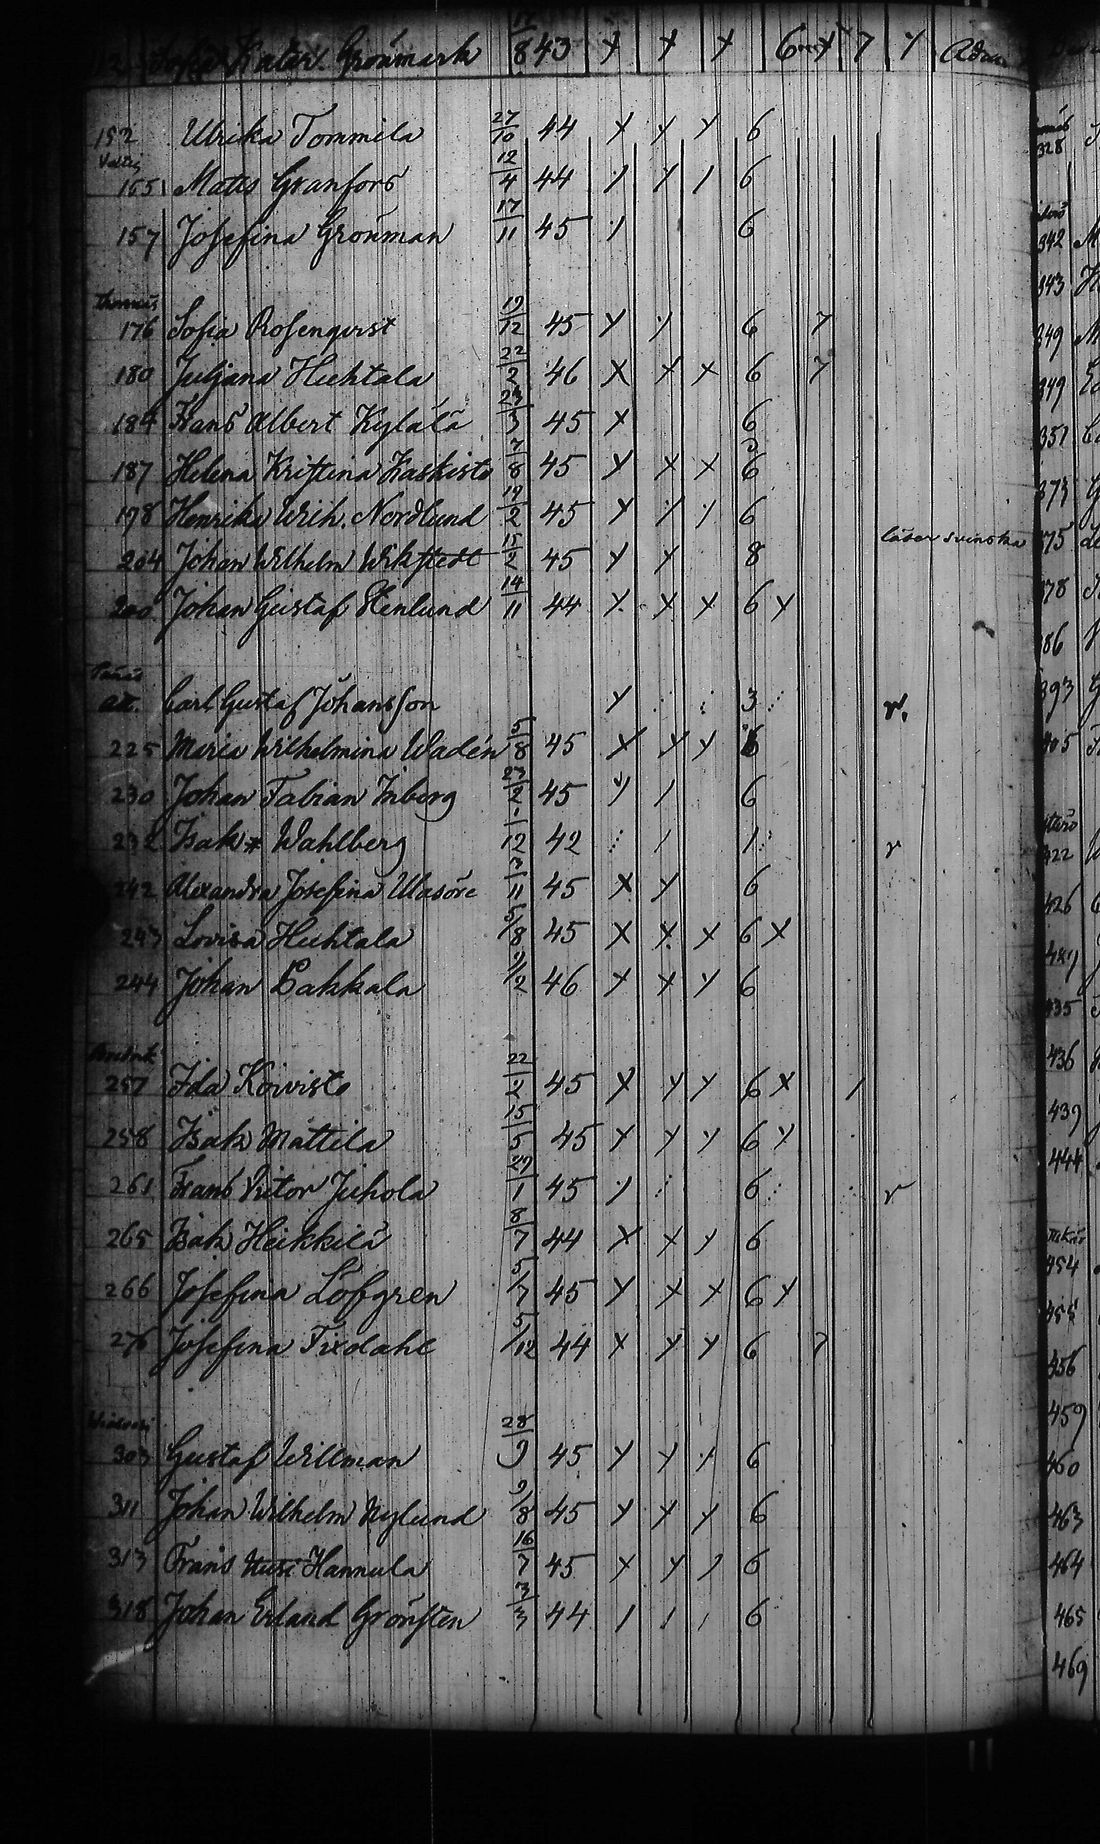 Sofia Katar. Grönmark 17/8 43 x x x 6 x 7 x
152 Ulrika Tommila 27/10 44 x x x 6
155 Mats Granfors 12/4 44 / / / 6
157 Josefina Grönman 17/11 45 / 6
Thomas
176 Sofia Rosenqvist 19/12 45 x / 6 7
180 Juljana Huhtala 22/2 46 x x x 6 7
184 Frans Albert Kylälä 23/3 45 x 6
187 Helena Kristina Kaskisto 7/8 45 x x x 6
198 Henrika Wilh. Nordlund 19/2 45 x / / 6
204 Johan Wilhelm Wikstedt 15/2 45 x x 8 läser svinska
200 Johan Gustaf Stenlund 14/11 44 x x x 6 x
Carl Gustaf Johansson x 3 r.
225 Maria Wilhelmina Wadén 5/8 45 x x x 6
230 Johan Fabian Inberg 23/2 45 x / 6
232 Isak Wahlberg 12 42 / 1 r
242 Alexandra Josefina Ulasöre 3/11 45 x x 6
243 Lovisa Huhtala 5/8 45 x x x 6 x
244 Johan Pakkala 9/2 46 x x x 6
257 Ida Koivisto 22/2 45 x x x 6 x /
258 Isak Mattila 15/5 45 x x x 6 x
261 Frans Viktor Juhola 27/1 45 / 6 r
265 Isak Heikkilä 8/7 44 x x x 6
266 Josefina Löfgren 5/7 45 x x x 6 x
276 Josefina Fixdahl 5/12 44 x x x 6 7
303 Gustaf Willman 28/9 45 x x x 6
311 Johan Wilhelm Nylund 9/8 45 x x x 6
313 Frans Hannula 16/7 45 x x / 6
318 Johan Erland Grönsten 3/3 44 / / / 6
328
342
343
349
349
351
373
375
378
386
393
405
422
426
435
436
439
444
454
455
456
459
460
463
464
465
469